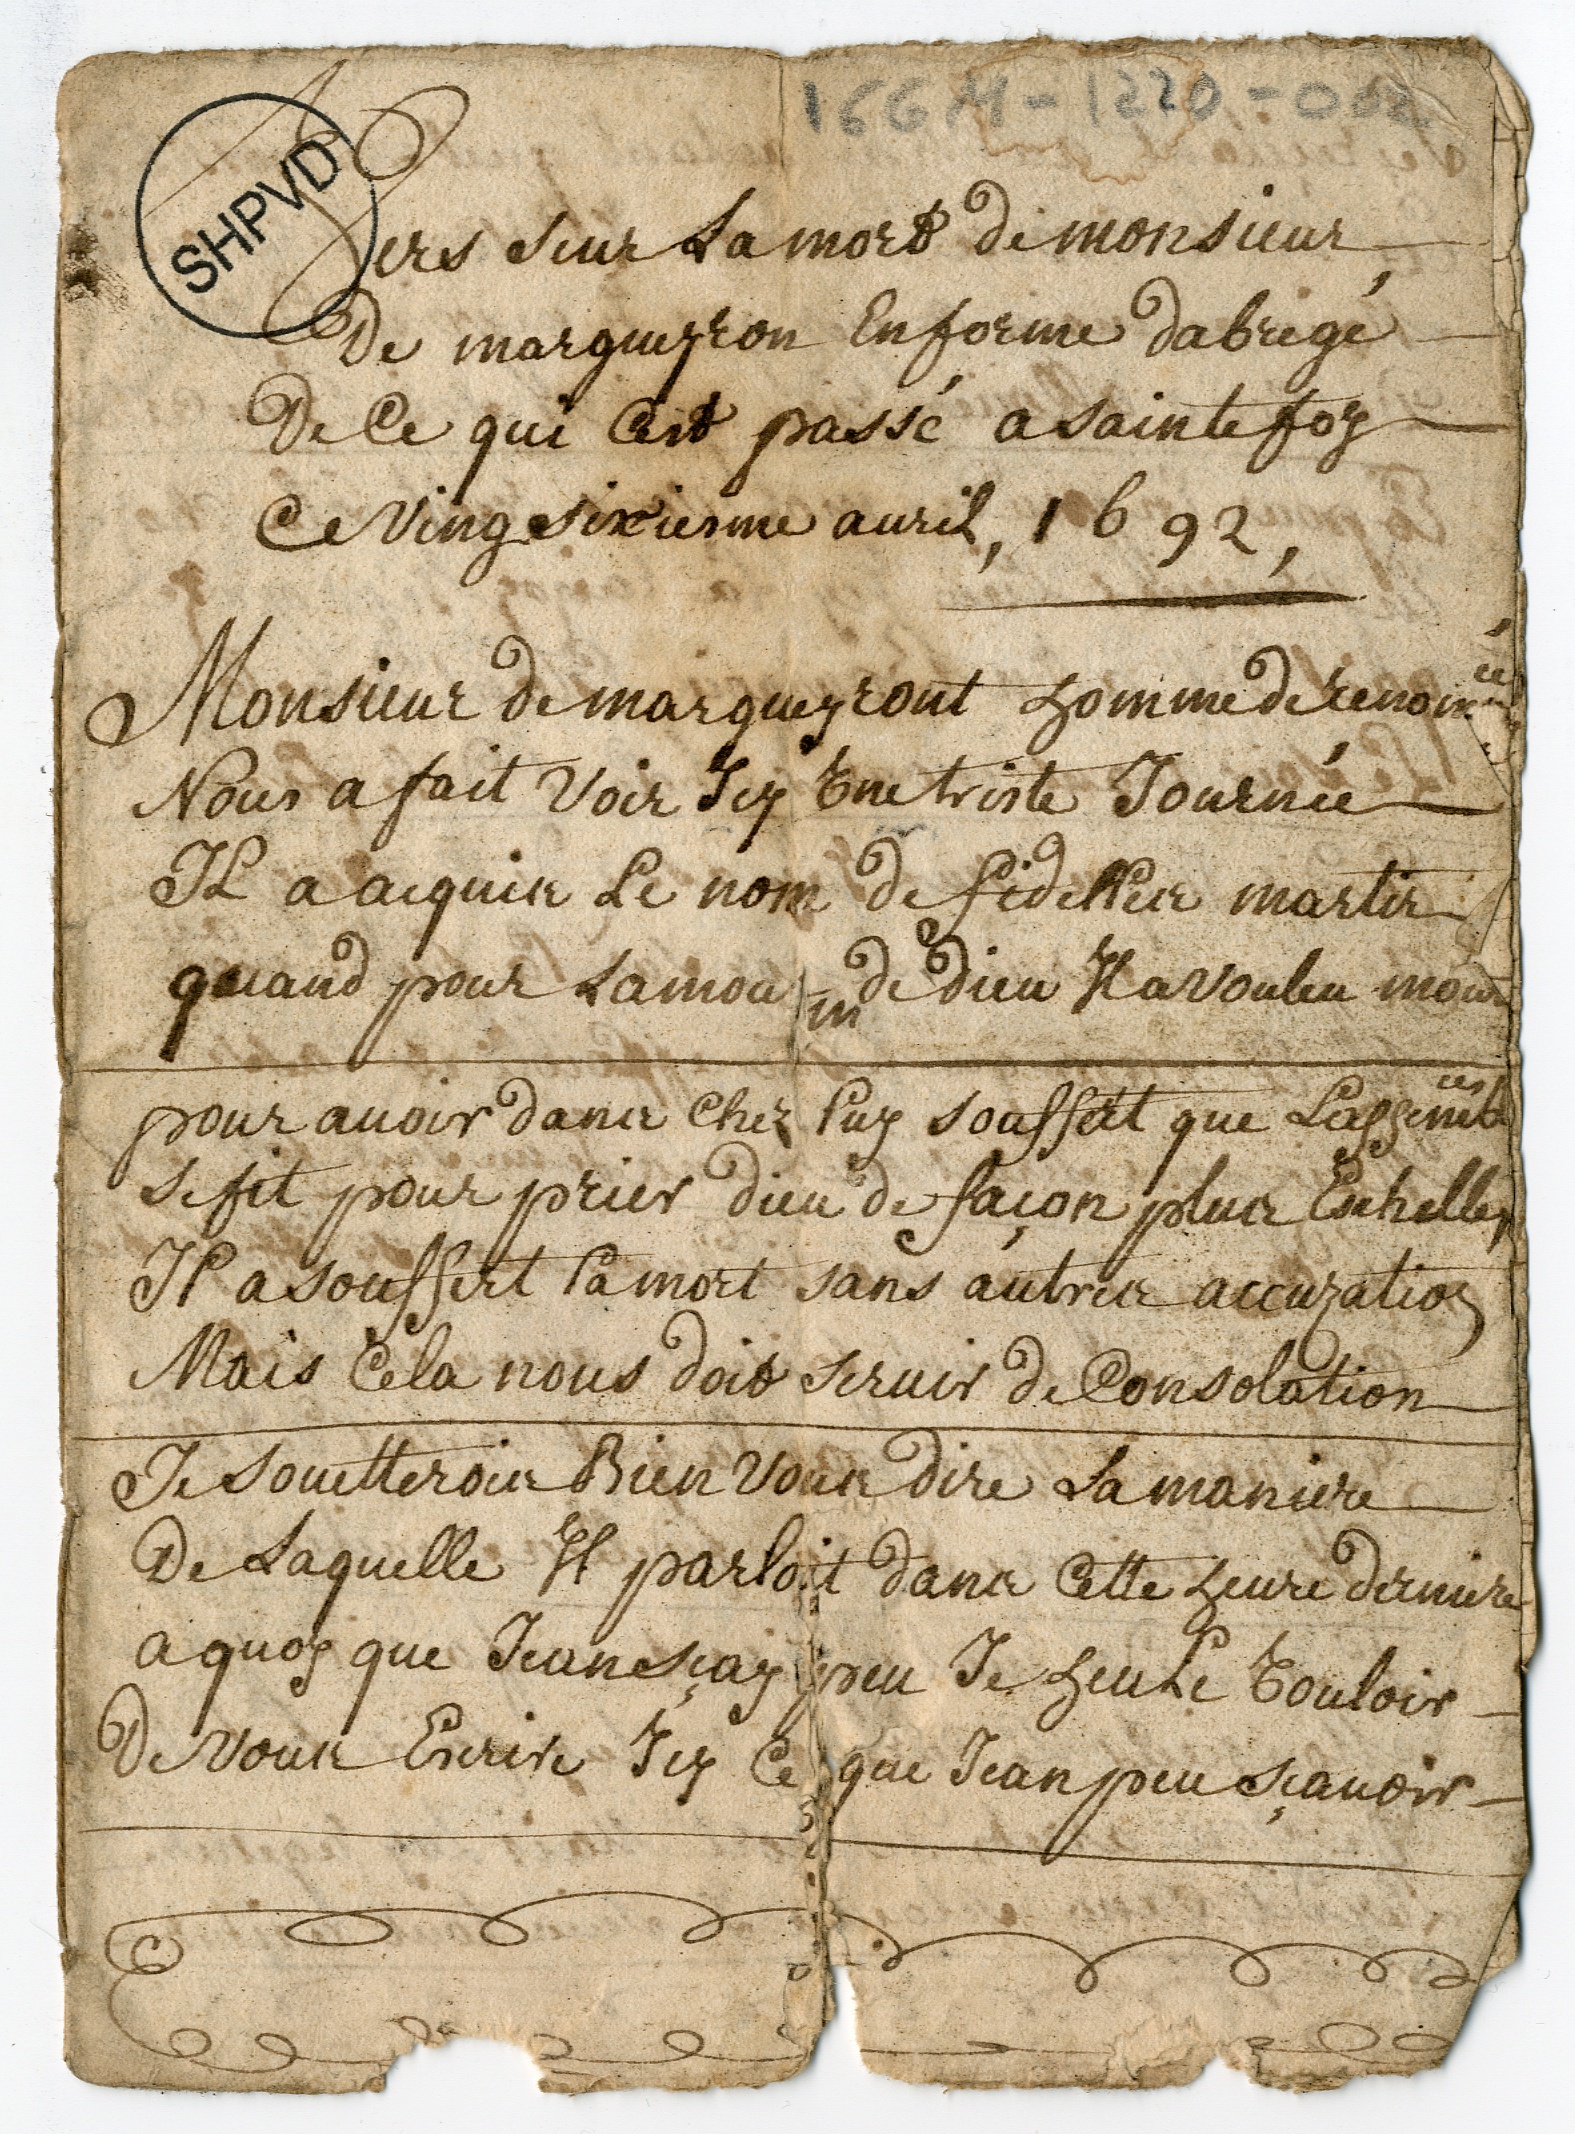 166M-1220-002
SHPVD
Vers seur La mort de monsieur
De margueyron En forme dabregé
De Ce qui Cest passé a sainte foy
Ce Ving sixiesme auril, 1692,
Monsieur de margueyront homme de renommée
Nous a fait Voir Icy Vne triste Journée
Il a acquis Le nom de fidelles martir
quand pour Lamour de dieu Il a vouleu mourir
pour auoir dans Chez luy souffert que Lassemblée
se fit pour prier dieu de façon plus
Il a souffert la mort sans autres accuzation
Mais Cela nous doit seruir de Consolation
Je souetterois Bien vous dire La maniere
De Laquelle Il parloit dans Cette heure derniere
a quoy que Jean sçay peu Je heu Le Vouloir
De vous Escrire Icy Ce que Jean peu sçauoir